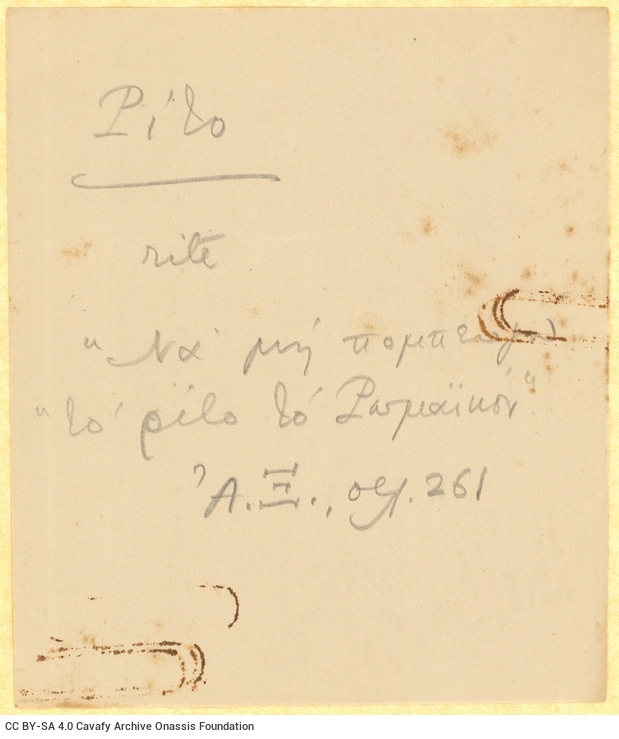 Ρίτο
rite
"Νά μή πομπευγω
"τό ρίτο τό Ρωμαϊκόν"
Ἀ.Ξ., σελ. 261
CC BY-SA 4.0 Cavafy Archive Onassis Foundation